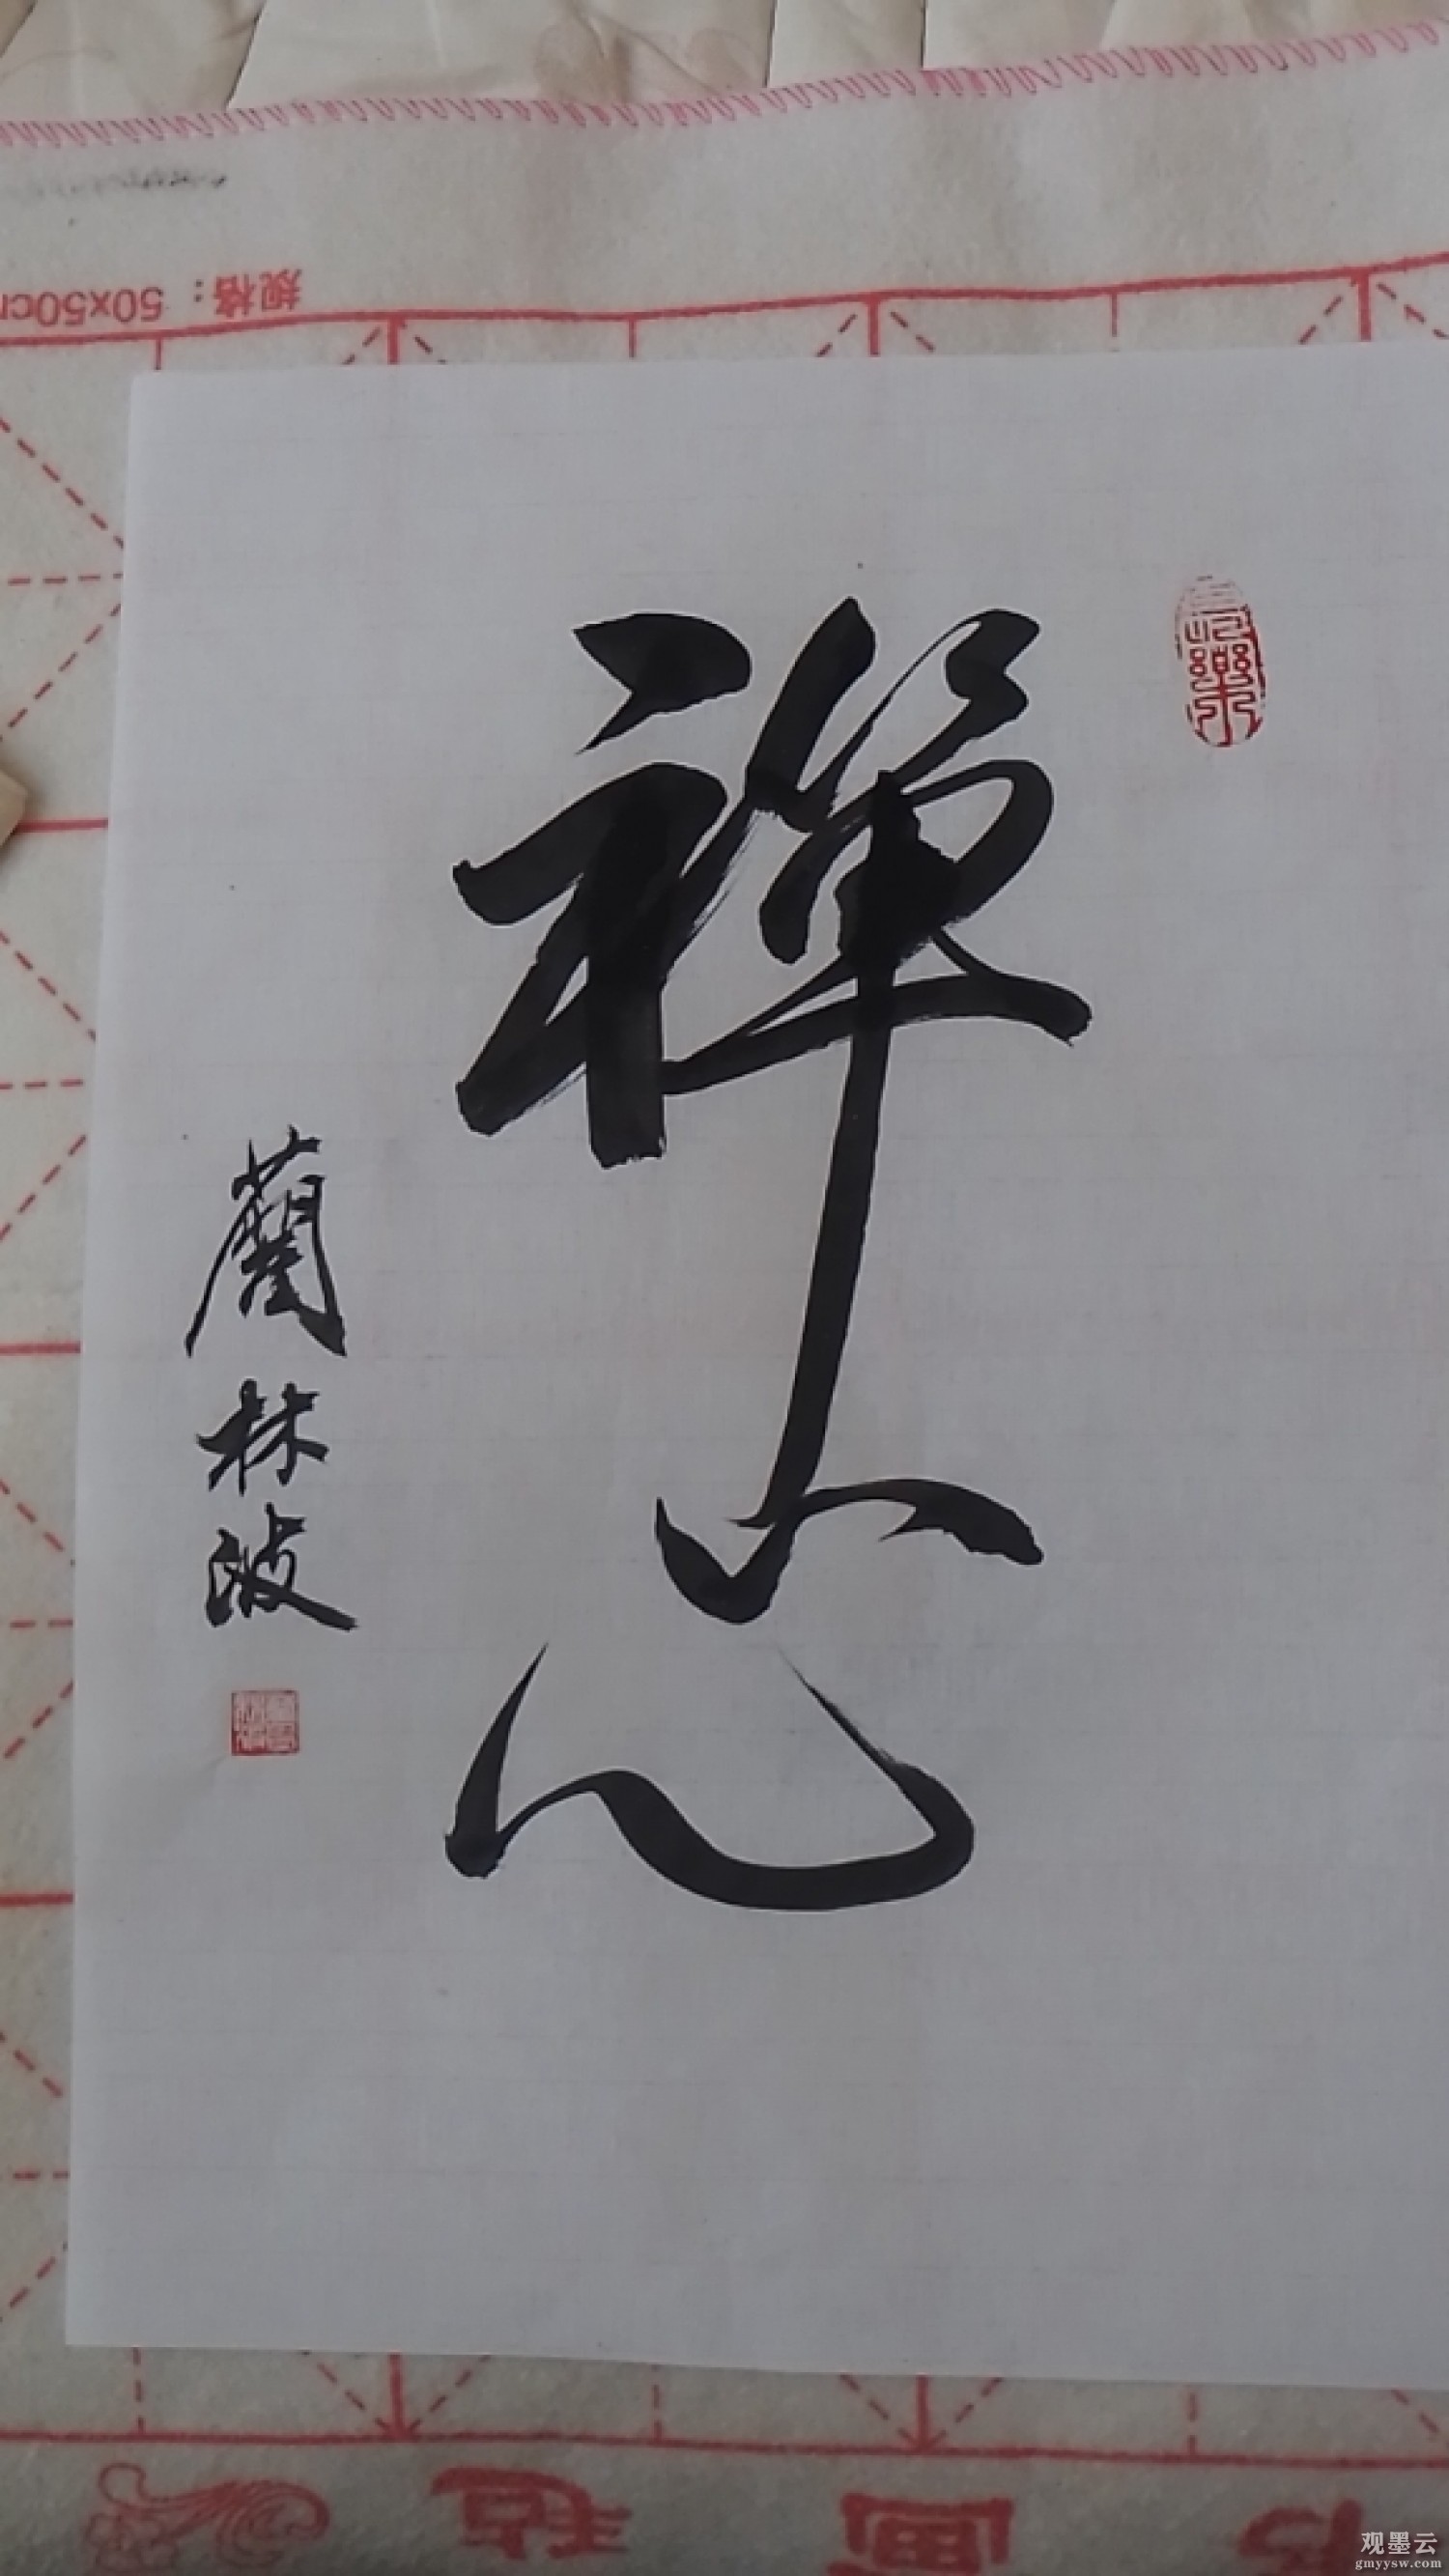 规格：50x50c
禅心
蘭林波
書畫毡
观墨云
gmyysw.com